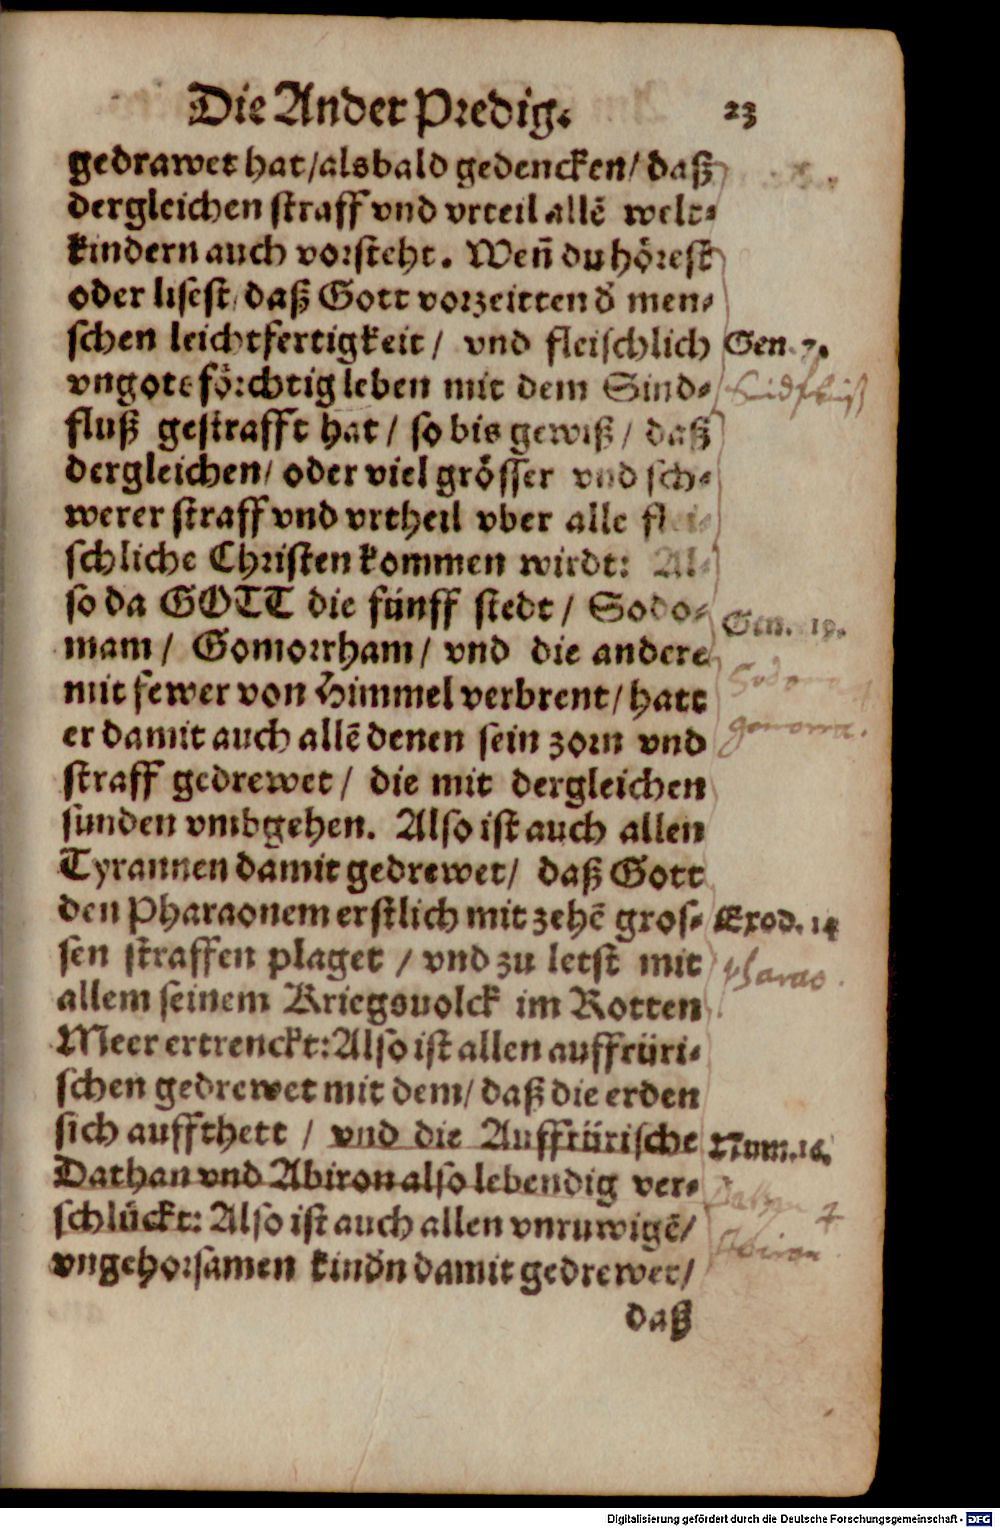 Die Ander Predig. 23
gedrawet hat/alsbald gedencken/ daß
dergleichen straff vnd vrteil allē welt-
kindern auch vorsteht. Wen̄ du hörest
oder lisest/ daß Gott vorzeitten d̕ men-
schen leichtfertigkeit/ vnd fleischlich
Gen. 7.
vngotsförchtig leben mit dem Sind-
Sindfluß
fluß gestrafft hat/ so bis gewiß/ daß
dergleichen/ oder viel grösser vnd sch-
werer straff vnd vrtheil vber alle flei-
schliche Christen kommen wirdt: Al-
so da GOTT die fünff stedt/ Sodo-
Gen. 19.
mam/ Gomorrham/ vnd die andere
Sodoma
mit fewer von Himmel verbrent/ hatt
gomorra.
er damit auch allē denen sein zorn vnd
straff gedrewet/ die mit dergleichen
sunden vmbgehen. Also ist auch allen
Tyrannen damit gedrewet/ daß Gott
den Pharaonem erstlich mit zehē gros-
Exod. 14
sen straffen plaget/ vnd zu letst mit
pharao.
allem seinem Kriegsuolck im Rotten
Meer ertrenckt: Also ist allen auffrüri-
schen gedrewet mit dem/ daß die erden
sich auffthett/ vnd die Auffrürische
Num. 16.
Dathan vnd Abiron also lebendig ver-
Dathan
schlückt: Also ist auch allen vnruwigē/
Abiron
vngehorsamen kind̕n damit gedrewet/
daß
Digitalisierung gefördert durch die Deutsche Forschungsgemeinschaft - DFG